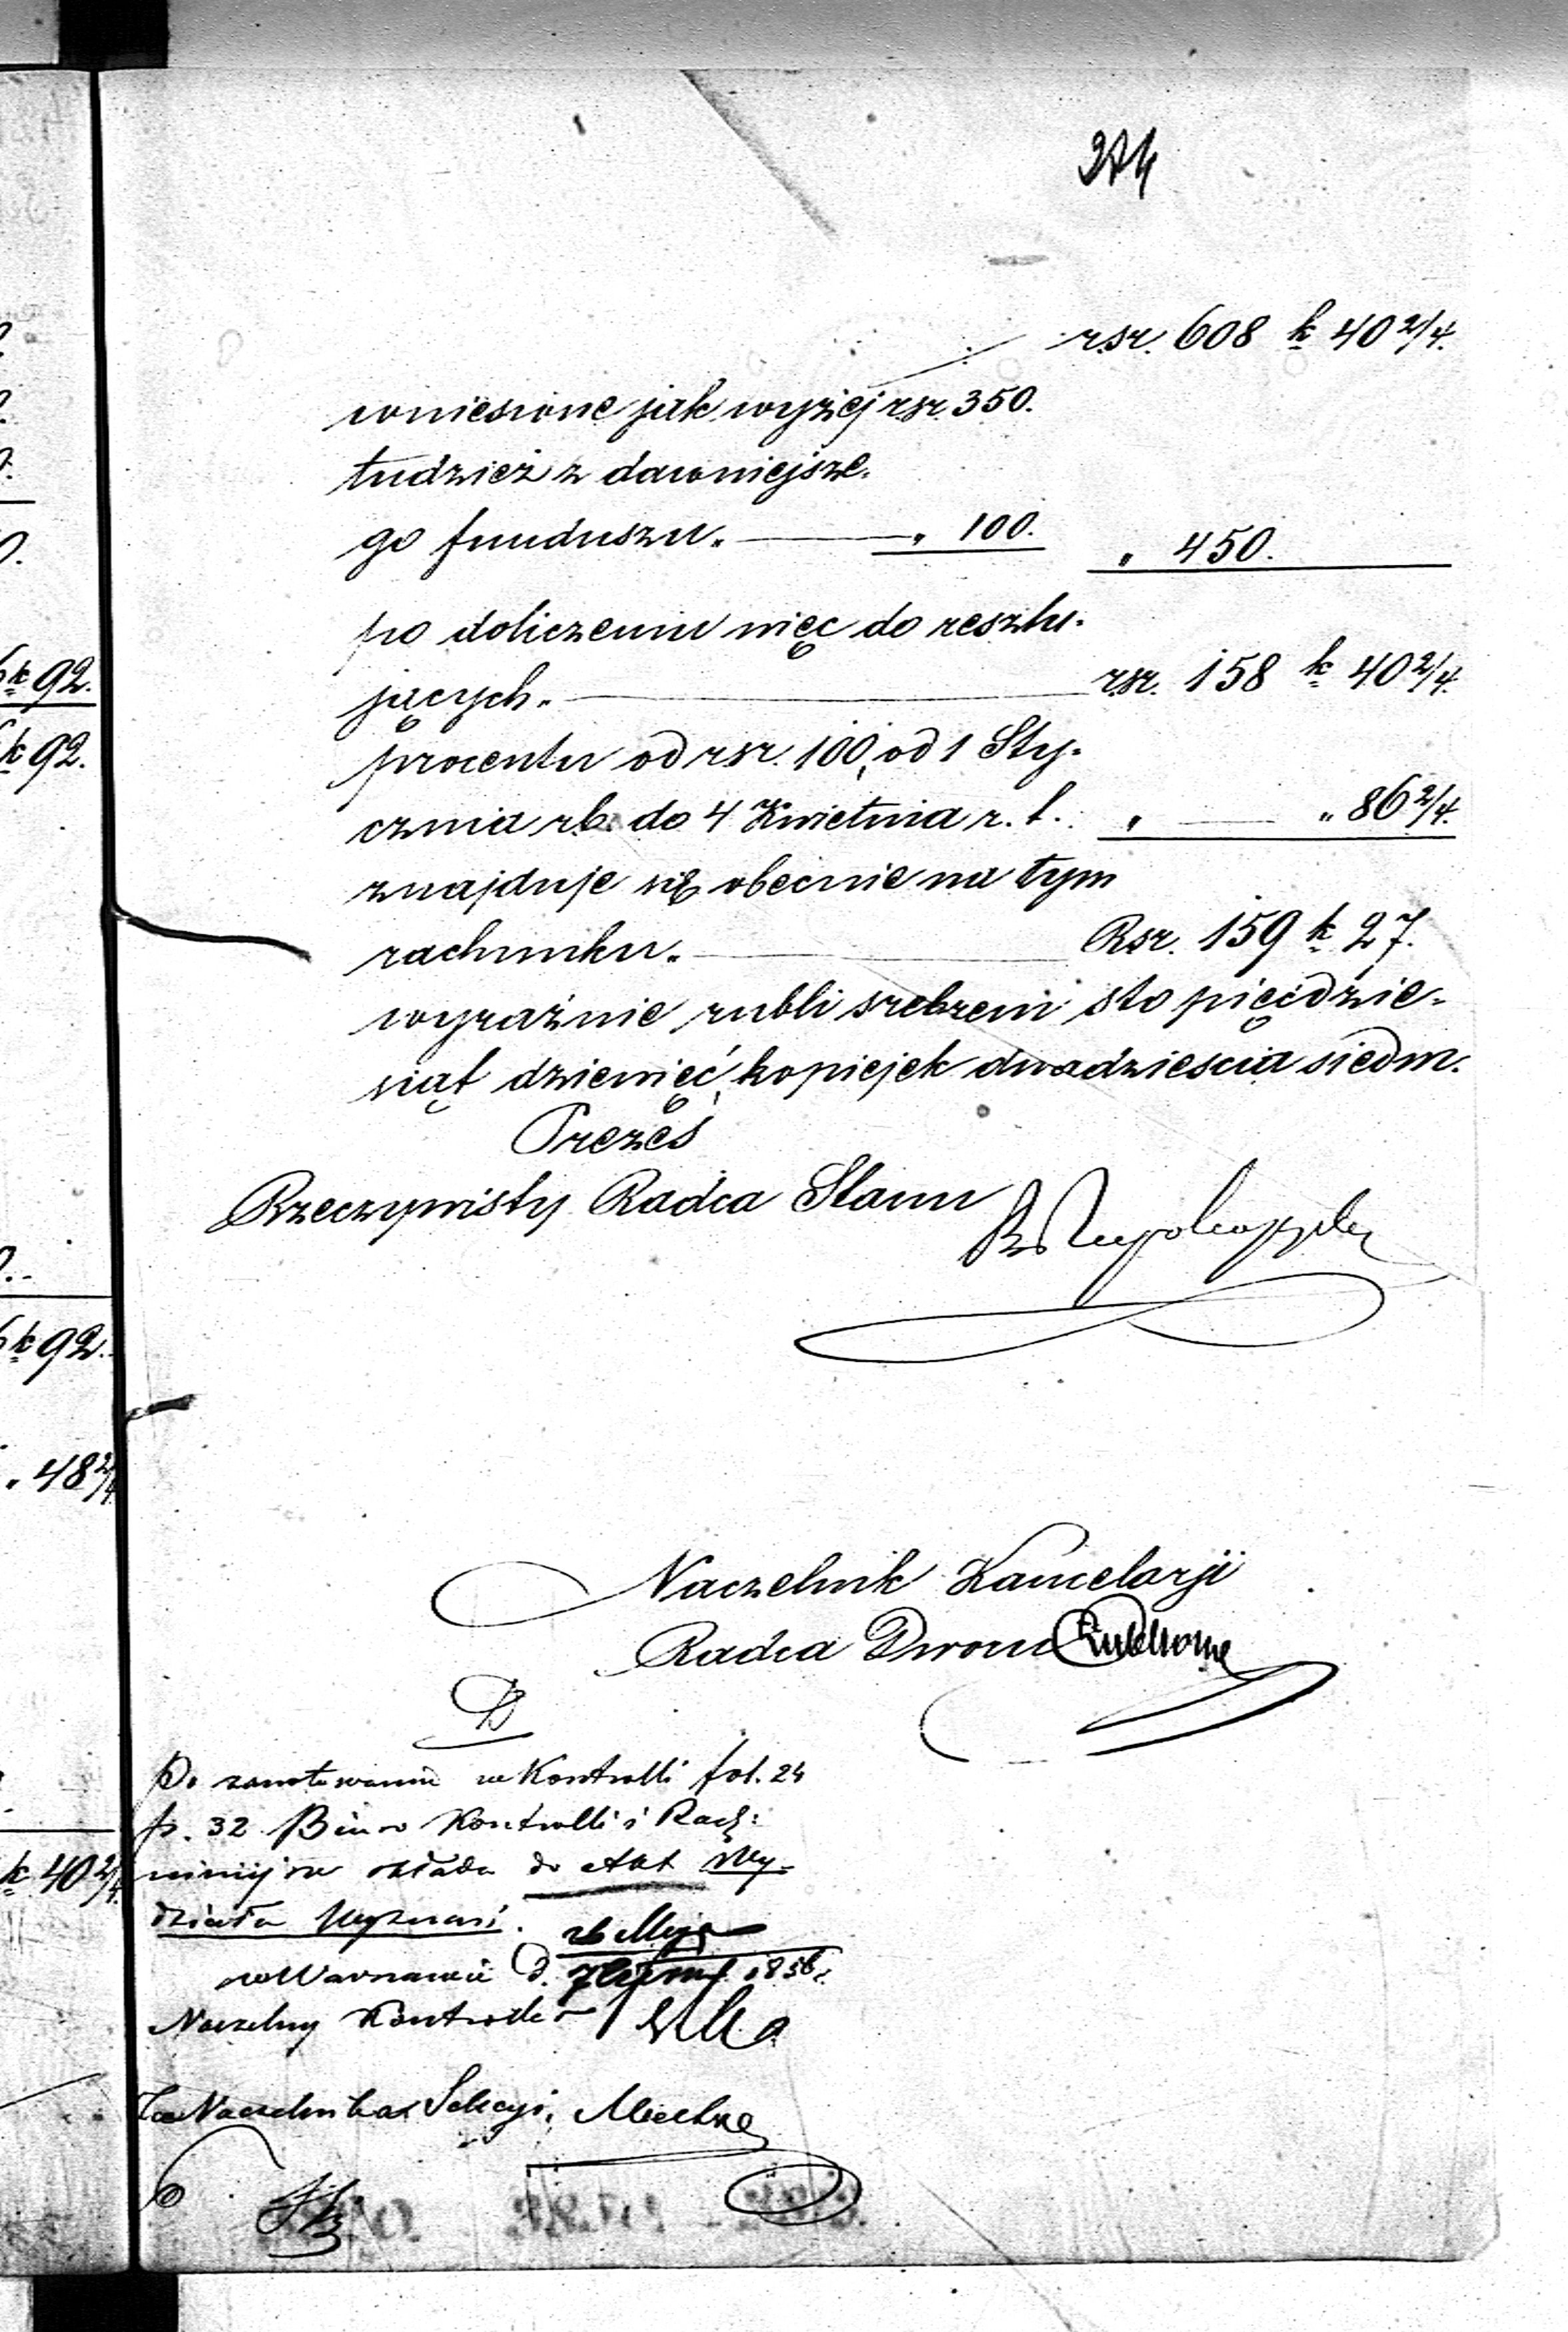 274
rsr. 608 k 40 2/4.
wniesione jak wyżej rsr. 350.
tudzież z dawniejsze-
go funduszu. — „ 100. „ 450.
po doliczeniu więc do resztu-
jących. — rsr. 158 k 40 2/4.
procentu od rsr. 100, od 1 Sty-
cznia rb. do 4 Kwietnia r. b. „ — „ 86 2/4.
znajduje się obecnie na tym
rachunku. — Rsr. 159 k 27.
wyraźnie rubli srebrem sto pięćdzie-
siąt dziewięć, kopiejek dwadzieścia siedm.
Prezes
Rzeczywisty Radca Stanu
Naczelnik Kancelarji
Radca Dworu
Do zanotowania w Kontrolli fol. 24
p. 32 Biuro Kontrolli i Rach:
niniejsze składa do Akt Wy-
działu Wyznań.
26 Maja
w Warszawie d. 7 Czerw. 1856 r.
Naczelny Kontroller
Za Naczelnika Sekcyi,
k 92.
k 92.
k 92.
„ 48 2/4
k 40 2/4.